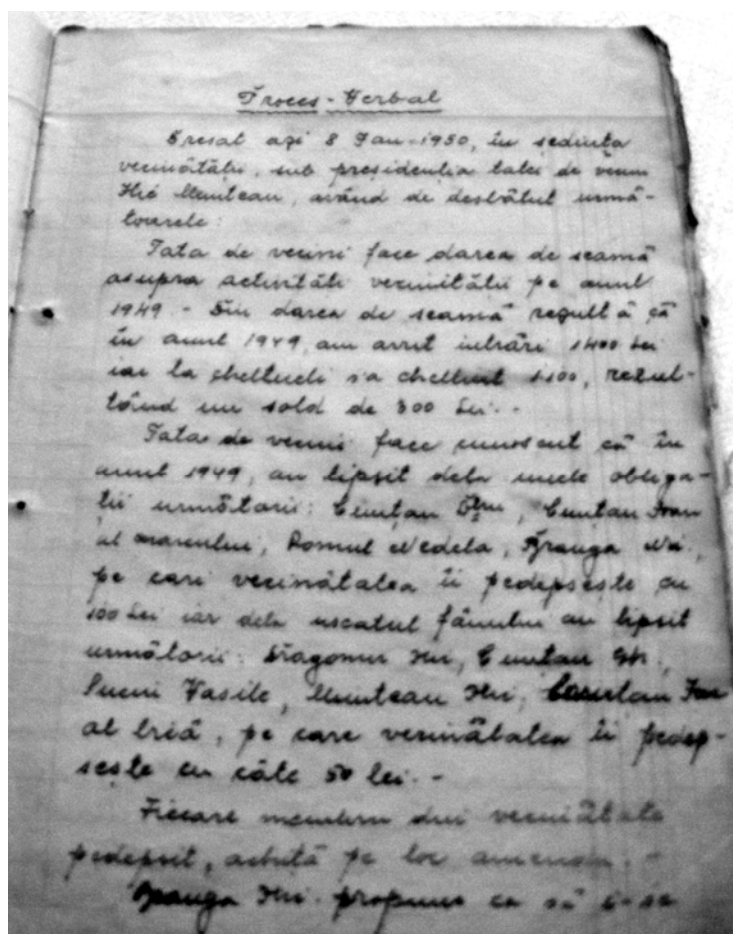 Proces-Verbal
Dresat azi 8 Ian-1950, în ședința
vecinătății, sub președenția tatei de vecini
Ilie Munteanu, având de desbătut urmă-
toarele:
Tata de vecini face darea de seamă
asupra activității vecinătății pe anul
1949. - Din darea de seamă rezultă că
în anul 1949, am avut intrări 1400 Lei
iar la cheltueli s'a cheltuit 1100, rezul-
tând un sold de 300 Lei. -
Tata de vecini face cunoscut că în
anul 1949, au lipsit dela unele obliga-
ții următorii: Ciunțan, Ciunțan Ioan
al, Romul Nedela,
pe cari vecinătatea îi pedepsește cu
100 Lei iar dela uscatul fânului au lipsit
următorii: Dragomir Ilie, Ciunțan Gh.,
Vasile, Munteanu Ilie, Ciunțan Ioan
al, pe care vecinătatea îi pedep-
sește cu câte 50 lei. -
Fiecare membru din vecinătate
pedepsit, achită pe loc amenda. -
Ilie propune ca să i-se